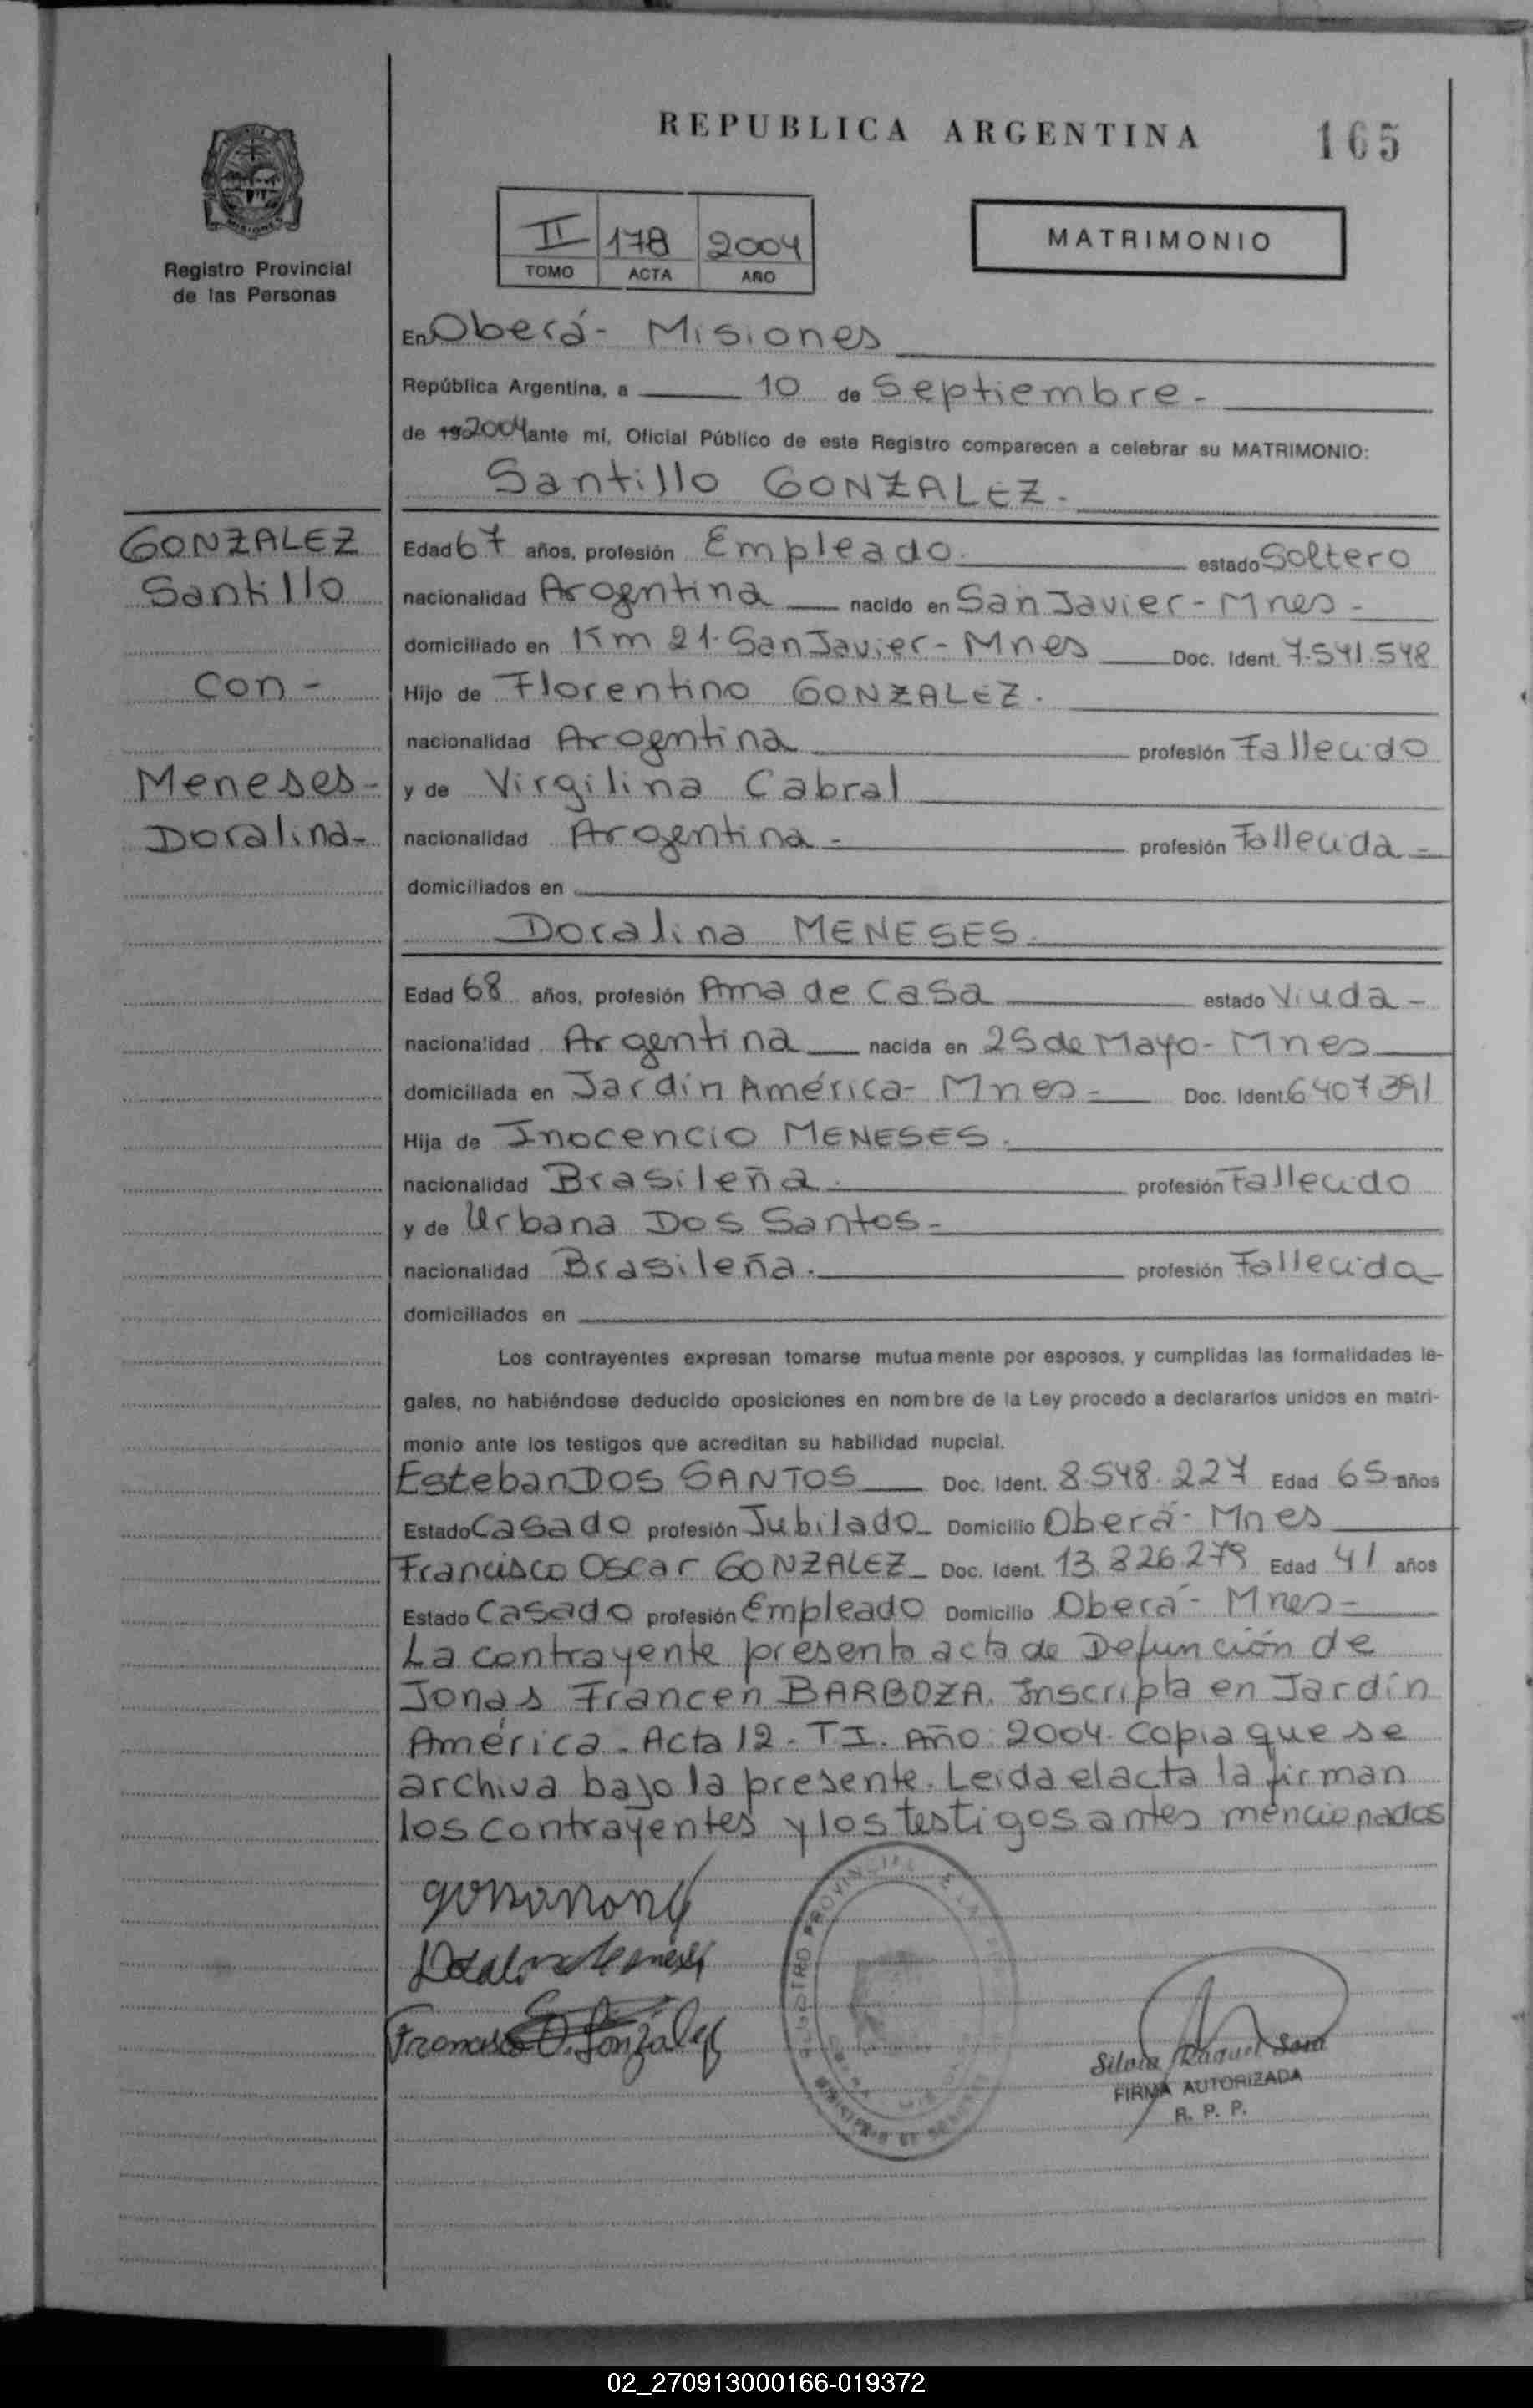 REPUBLICA ARGENTINA
165
MISIONES
Registro Provincial
de las Personas
II 178 2004
TOMO ACTA AÑO
MATRIMONIO
En Oberá - Misiones
República Argentina, a 10 de Septiembre -
de 19 2004 ante mí, Oficial Público de este Registro comparecen a celebrar su MATRIMONIO:
Santillo GONZALEZ.
GONZALEZ
Santillo
Con -
Meneses -
Doralina -
Edad 67 años, profesión Empleado. estado Soltero
nacionalidad Argentina nacido en San Javier - Mnes -
domiciliado en Km 21. San Javier - Mnes Doc. Ident. 7.541.548
Hijo de Florentino GONZALEZ.
nacionalidad Argentina profesión Fallecido
y de Virgilina Cabral
nacionalidad Argentina - profesión Fallecida -
domiciliados en
Doralina MENESES.
Edad 68 años, profesión Ama de Casa estado Viuda -
nacionalidad Argentina nacida en 25 de Mayo - Mnes
domiciliada en Jardín América - Mnes - Doc. Ident. 6407391
Hija de Inocencio MENESES.
nacionalidad Brasileña. profesión Fallecido
y de Urbana Dos Santos -
nacionalidad Brasileña. profesión Fallecida
domiciliados en
Los contrayentes expresan tomarse mutuamente por esposos, y cumplidas las formalidades le-
gales, no habiéndose deducido oposiciones en nombre de la Ley procedo a declararlos unidos en matri-
monio ante los testigos que acreditan su habilidad nupcial.
Esteban DOS SANTOS Doc. Ident. 8.548.227 Edad 65 años
Estado Casado profesión Jubilado Domicilio Oberá - Mnes
Francisco Oscar GONZALEZ Doc. Ident. 13.826.279 Edad 41 años
Estado Casado profesión Empleado Domicilio Oberá - Mnes -
La contrayente presenta acta de Defunción de
Jonas Francen BARBOZA. Inscripta en Jardín
América - Acta 12 - T I. Año: 2004. Copia que se
archiva bajo la presente. Leida el acta la firman
los contrayentes y los testigos antes mencionados
Francisco O. González
REGISTRO PROVINCIAL DE LAS
Silvia Raquel Sosa
FIRMA AUTORIZADA
R. P. P.
02_270913000166-019372